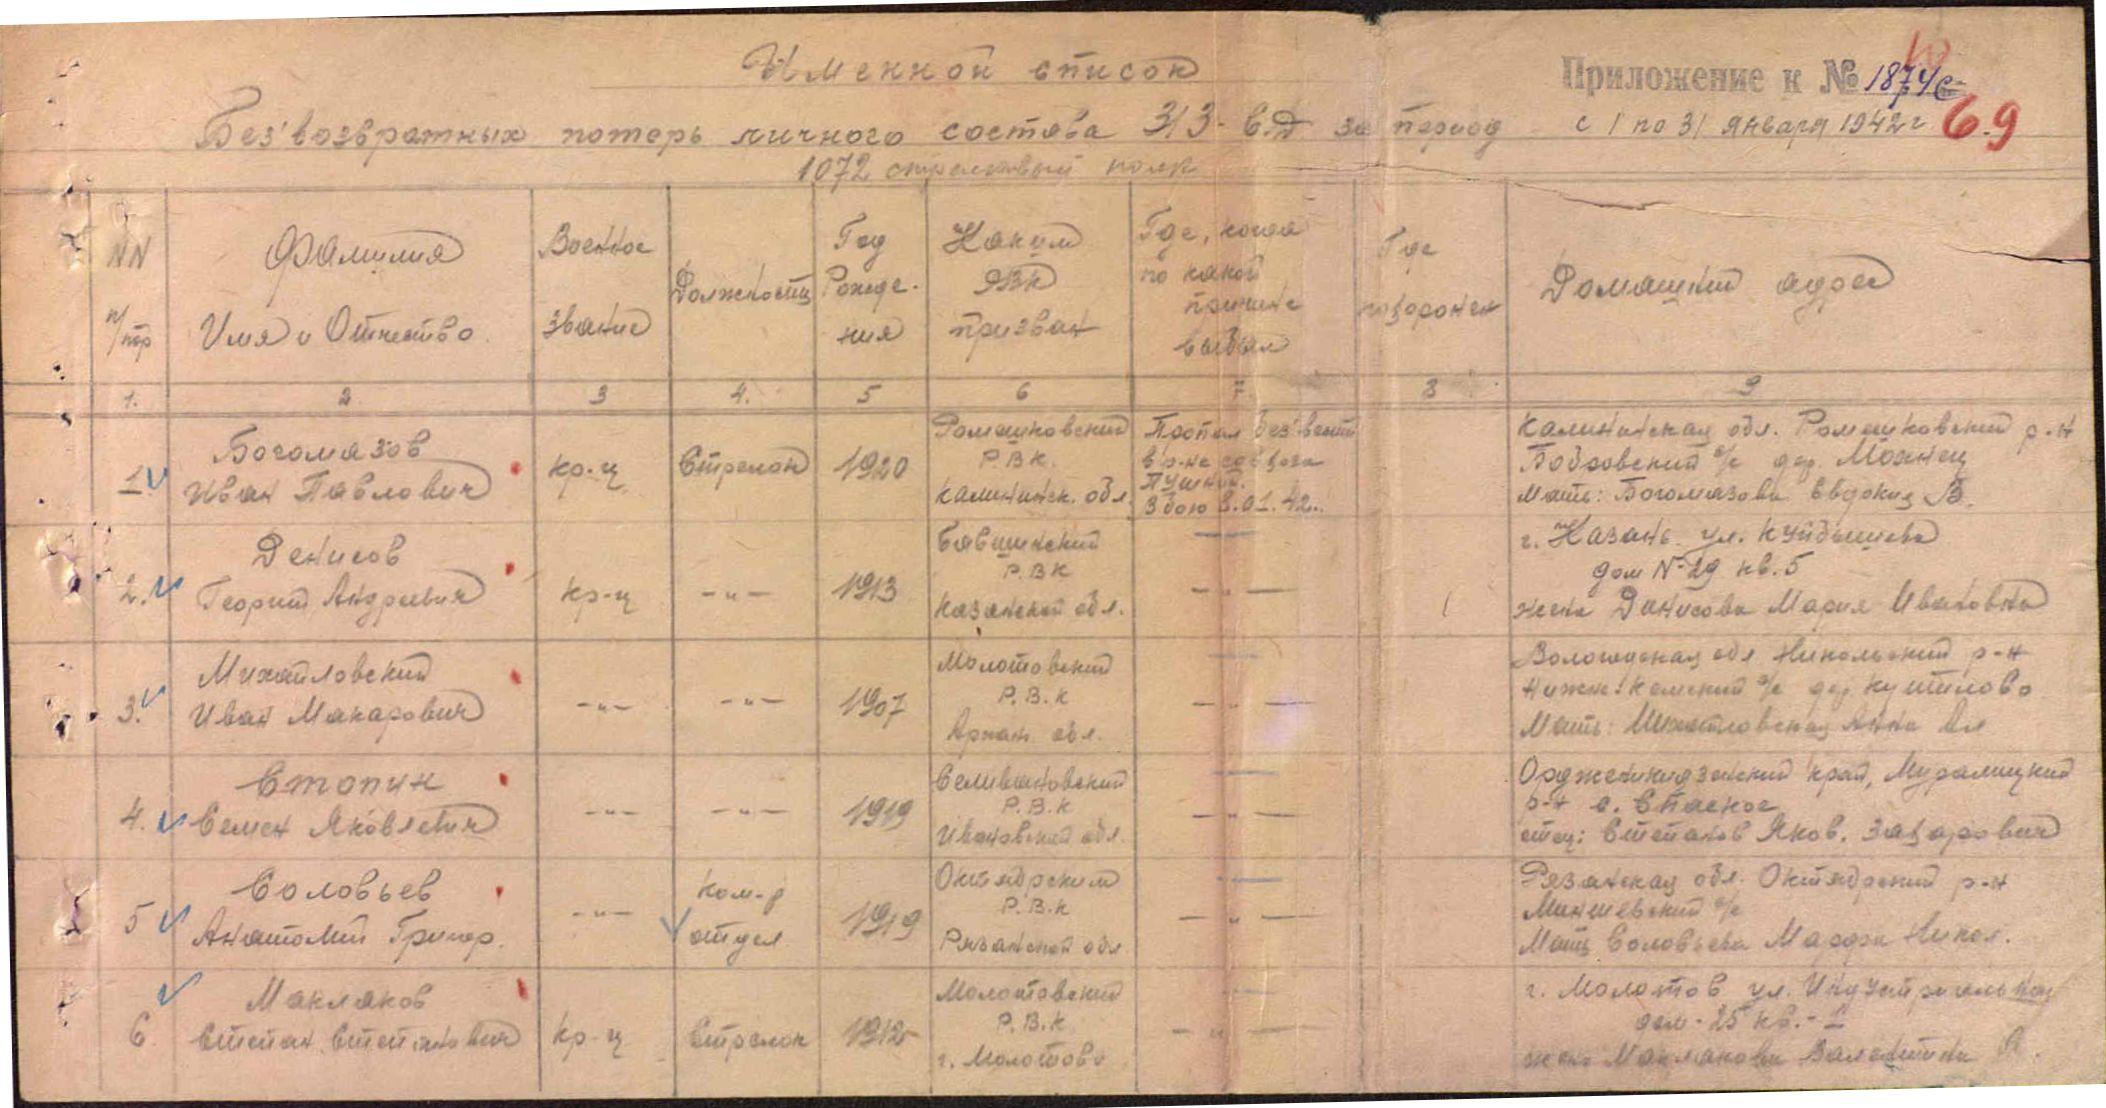 Именной список
Приложение к № 1874с
Без'возвратных потерь личного состава 313 - С.Д за период с 1 по 31 января 1942 г
6.9
1072 стрелковый полк
NN п/пор
Фамилия Имя и Отчество
Военное звание
Должность
Год Рожде-ния
Каким РВК призван
Где, когда по какой причине выбыл
Где похоронен
Домашний адрес
1. 2 3 4. 5 6 7 8 9
1.
Богомазов
Иван Павлович
кр-ц
Стрелок
1920
Ромашковский
Р.В.К.
Калининск. обл.
Пропал без'вести
в р-не совхоза
Пушкин.
3 бою 8.01.42.
Калининская обл. Ромашковский р-н
с/с дер. Можнец
Мать: Богомазова Евдокия В.
2.
Денисов
Георгий Андреевич
кр-ц
-"-
1913
Р.ВК
Казанской обл.
- " -
г. Казань ул. Куйбышева
дом № 29 кв. 5
жена Динисова Мария Ивановна
3.
Михайловский
Иван Макарович
-"-
-"-
1907
Молотовский
Р.В.К
Архан. обл.
- " -
Вологодская обл Никольский р-н
с/с дер Кутилово
Мать: Михайловская Анна
4.
Стопин
Семен Яковлевич
-"-
-"-
1919
Селивановский
Р.В.К
Ивановской обл.
- " -
Орджоникидзенский край,
р-н с. Спасное
отец: Степанов Яков. Захарович
5
Соловьев
Анатолий Григор.
-"-
ком-р
отдел
1919
Октябрским
Р.В.К
Рязанской обл
- " -
Рязанская обл. Октябрский р-н
с/с
Мать Соловьева Марфа Никол.
6
Макляков
Степан Степанович
кр-ц
Стрелок
1912
Молотовский
Р.В.К
г. Молотово
- " -
г. Молотов ул. Индустриальная
дом - 25 кв. - 1
жена Маклакова Валентина А.